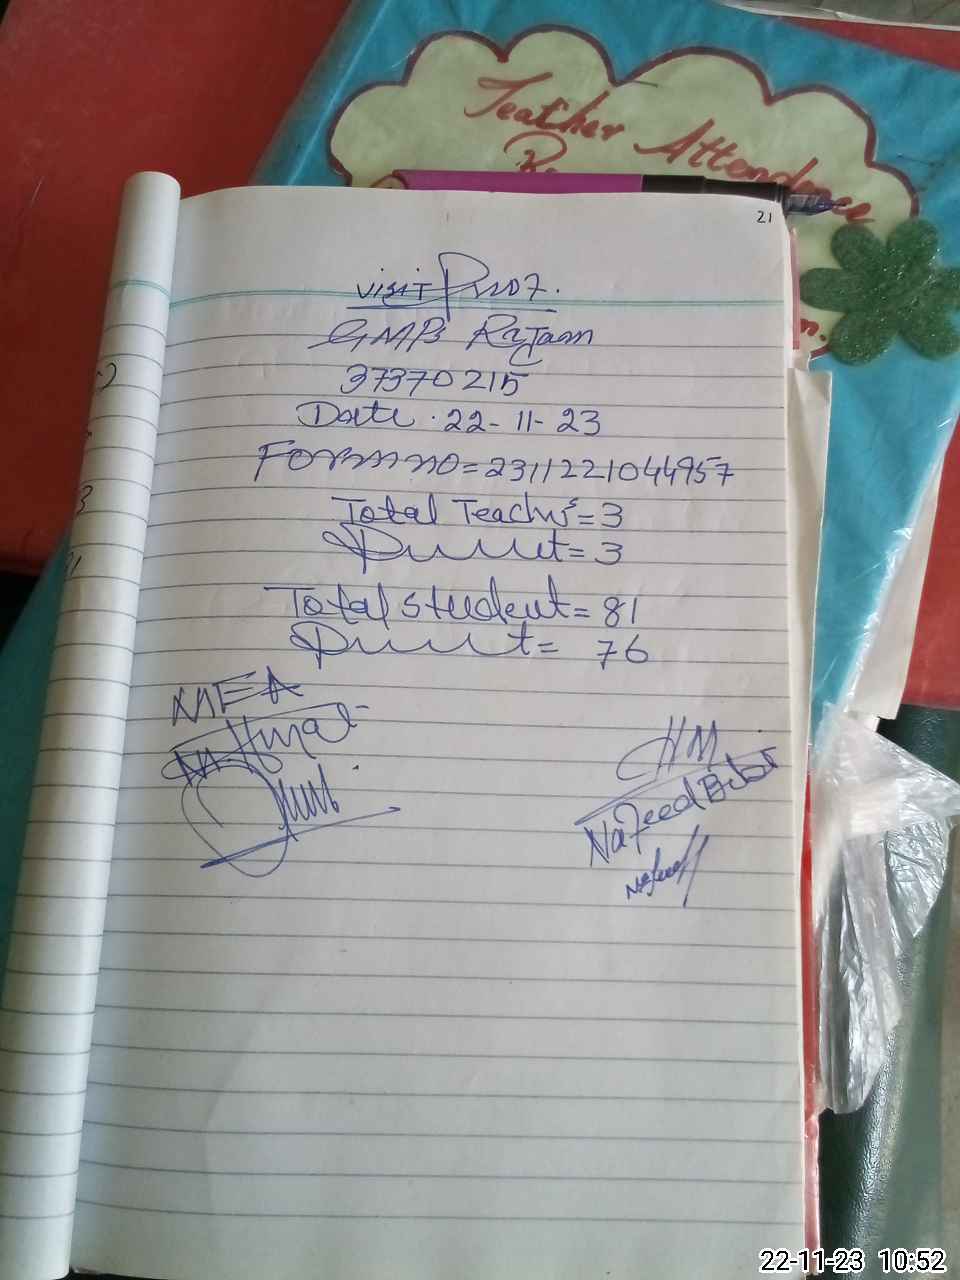 Teacher Attendence
21
visit Proof.
GMPS Rajam
37370215
Date . 22-11-23
Form no = 2311221044957
Total Teachers = 3
Present = 3
Total student = 81
Present = 76
MEA
HM
Nafeed Bibi
22-11-23 10:52